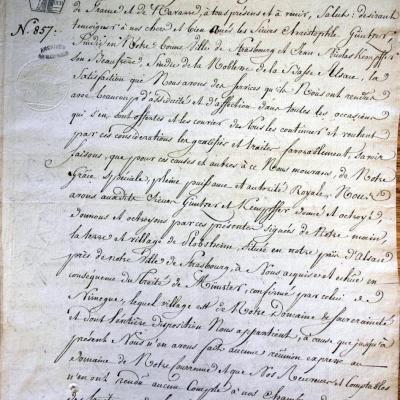 N.° 857.
de France et de Navarre, à tous presens et à venir, Salut; desirant
temoigner à nos chers et bien amés les Sieurs Christophle Güntzer,
Sindic en Notre bonne Ville de Strasbourg et Jean Nicolas Kempffer
son Beaufrere Sindic de la Noblesse de la Basse Alsace, la
Satisfaction que Nous avons des Services qu'ils Nous ont rendus
avec beaucoup d'assiduité et d'affection dans toutes les occasions
qui s'en sont offertes et les convier de Nous les continuer et voulant
par ces considerations les gratifier et traiter favorablement, savoir
faisons, que pour ces causes et autres à ce Nous mouvans de Notre
Grace Speciale, pleine puissance et autorité Royale, Nous
avons auxdits Sieurs Güntzer et Kempffer donné et octroyé
donnons et octroyons par ces presentes signées de Notre main,
la terre et village de situés en notre païs d'alsace
près de notre Ville de Strasbourg, à Nous acquise et echue en
consequence du Traité de Münster, confirmé par celui de
Nimegue, lequel village est de Notre Domaine de Souveraineté
et dont l'entiere disposition Nous appartient, à cause que jusqu'à
présent Nous n'en avons fait aucune reunion expresse au
Domaine de Notre Couronne et que Nos Receveurs et Comptables
n'en ont rendu aucun Compte à nos Chambres